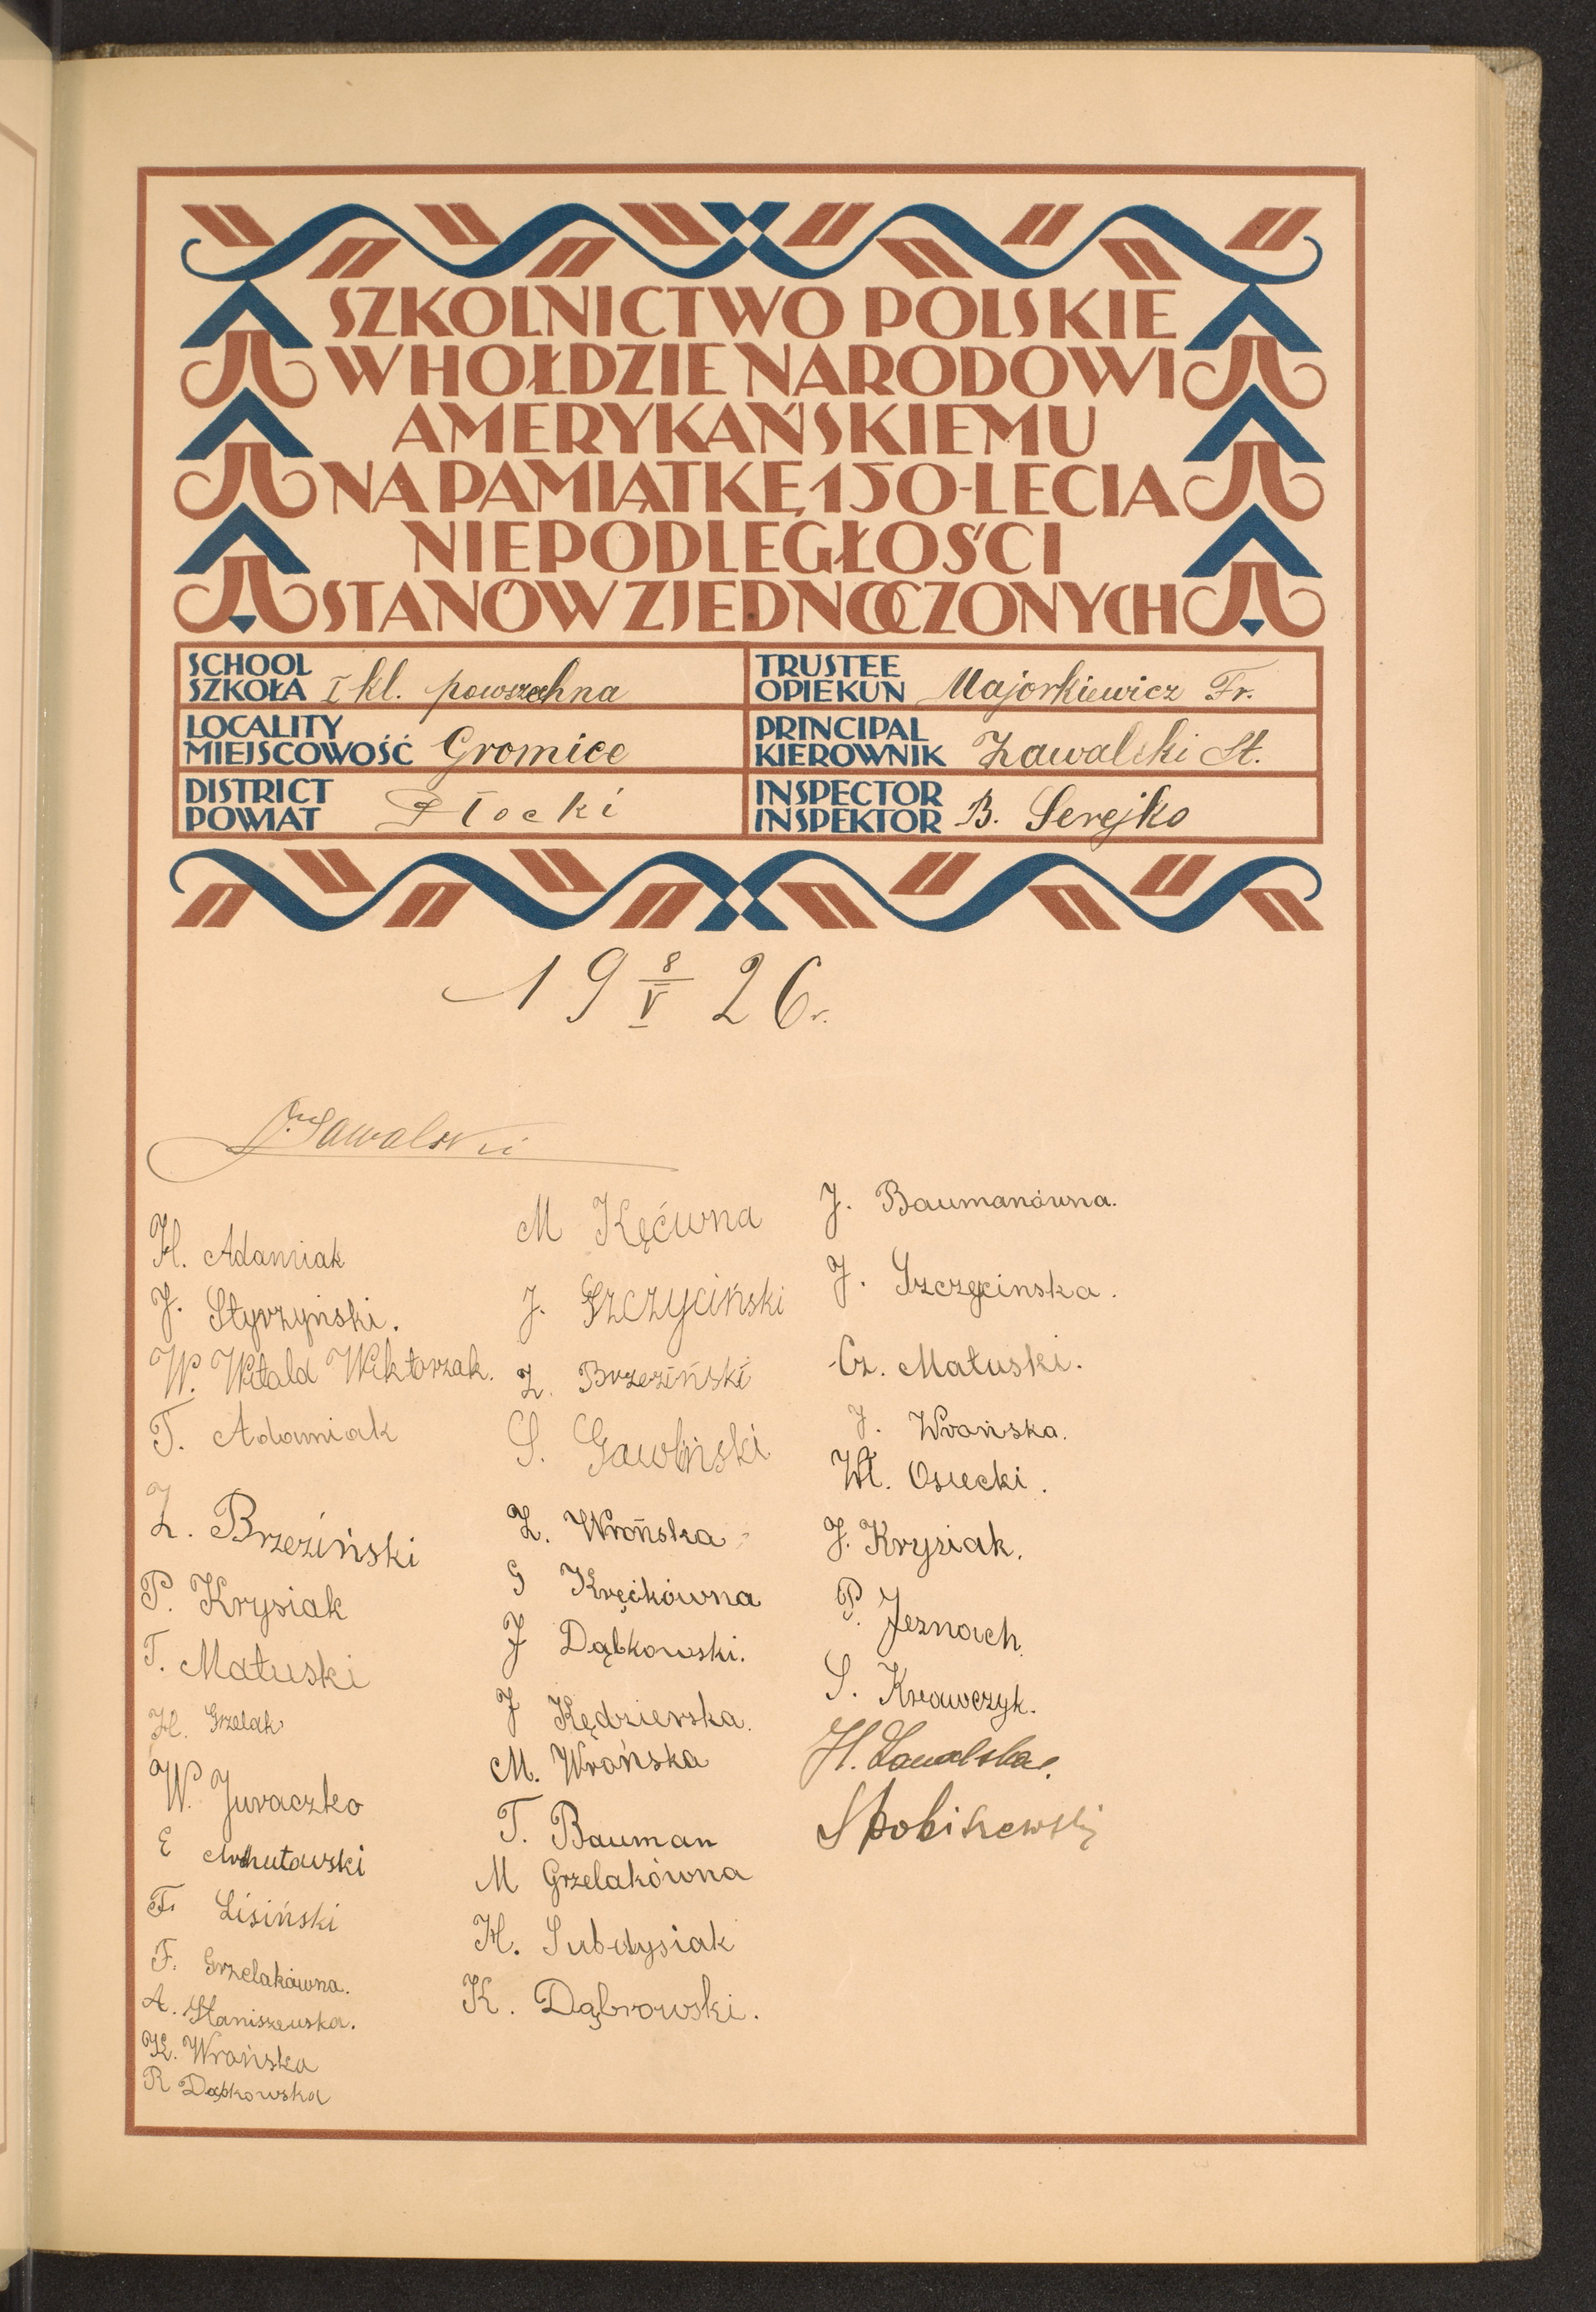 SZKOLNICTWO POLSKIE
W HOŁDZIE NARODOWI
AMERYKAŃSKIEMU
NA PAMIĄTKĘ 150-LECIA
NIEPODLEGŁOŚCI
STANÓW ZJEDNOCZONYCH
SCHOOL
SZKOŁA I kl. powszechna
LOCALITY
MIEJSCOWOŚĆ Gromice
DISTRICT
POWIAT Płocki
TRUSTEE
OPIEKUN Majorkiewicz Fr.
PRINCIPAL
KIEROWNIK Zawalski St.
INSPECTOR
INSPEKTOR B. Serejko
19 8/V 26 r.
Zawalski
H. Adamiak
J. Styrzyński.
W. Witald Wiktorzak.
T. Adamiak
Z. Brzeziński
P. Krysiak
T. Matuski
H. Grzelak
W. Juraczko
E
F. Lisiński
F. Grzelakówna.
A. Staniszewska.
K. Wrońska
R Dąbkowska
M Kęćwna
J. Szczyciński
Z. Brzeziński
S. Gawliński
Z. Wrońska
G Kręćkówna
J Dąbkowski.
J Kędzierska.
M. Wrońska
T. Bauman
M Grzelakówna
H. Subdysiak
K. Dąbrowski.
J. Baumanówna.
J. Szczycinska.
Cz. Matuski.
J. Wrońska.
Wł. Osiecki.
J. Krysiak.
P. Jeznach.
S. Krawczyk.
H. Zawalska.
Skobiszewski